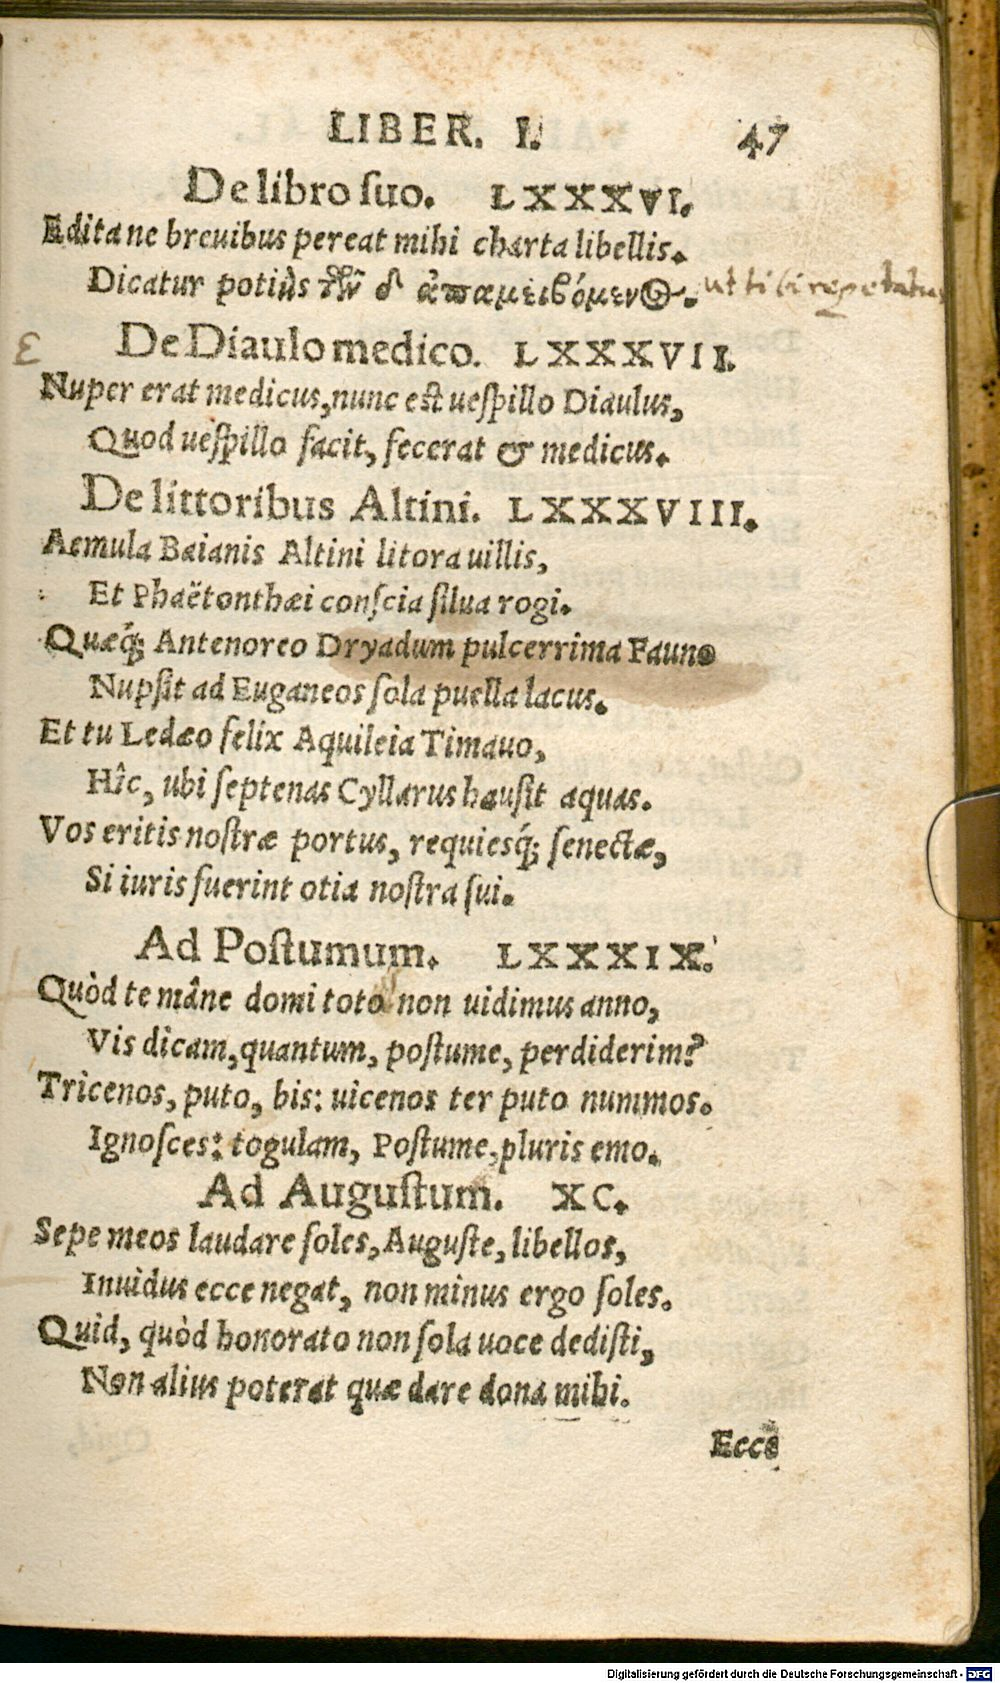 LIBER. I. 47
De libro ſuo. LXXXVI.
Edita ne breuibus pereat mihi charta libellis.
Dicatur potiùs τὸν δ' ἀπαμειβόμενος. ut tibi repetatur
De Diaulo medico. LXXXVII.
Nuper erat medicus, nunc eſt ueſpillo Diaulus,
Quod ueſpillo facit, fecerat & medicus.
De littoribus Altini. LXXXVIII.
Aemula Baianis Altini litora uillis,
Et Phaëtonthæi conſcia ſilua rogi.
Quæq́; Antenoreo Dryadum pulcerrima Fauno
Nupſit ad Euganeos ſola puella lacus.
Et tu Ledæo felix Aquileia Timauo,
Hîc, ubi ſeptenas Cyllarus hauſit aquas.
Vos eritis noſtræ portus, requiesq́; ſenectæ,
Si iuris fuerint otia noſtra ſui.
Ad Poſtumum. LXXXIX.
Quòd te mâne domi toto non uidimus anno,
Vis dicam, quantum, poſtume, perdiderim?
Tricenos, puto, bis: uicenos ter puto nummos.
Ignoſces: togulam, Poſtume, pluris emo.
Ad Auguſtum. XC.
Sepe meos laudare ſoles, Auguſte, libellos,
Inuidus ecce negat, non minus ergo ſoles.
Quid, quòd honorato non ſola uoce dediſti,
Non alius poterat quæ dare dona mihi.
Ecce
Digitalisierung gefördert durch die Deutsche Forschungsgemeinschaft - DFG